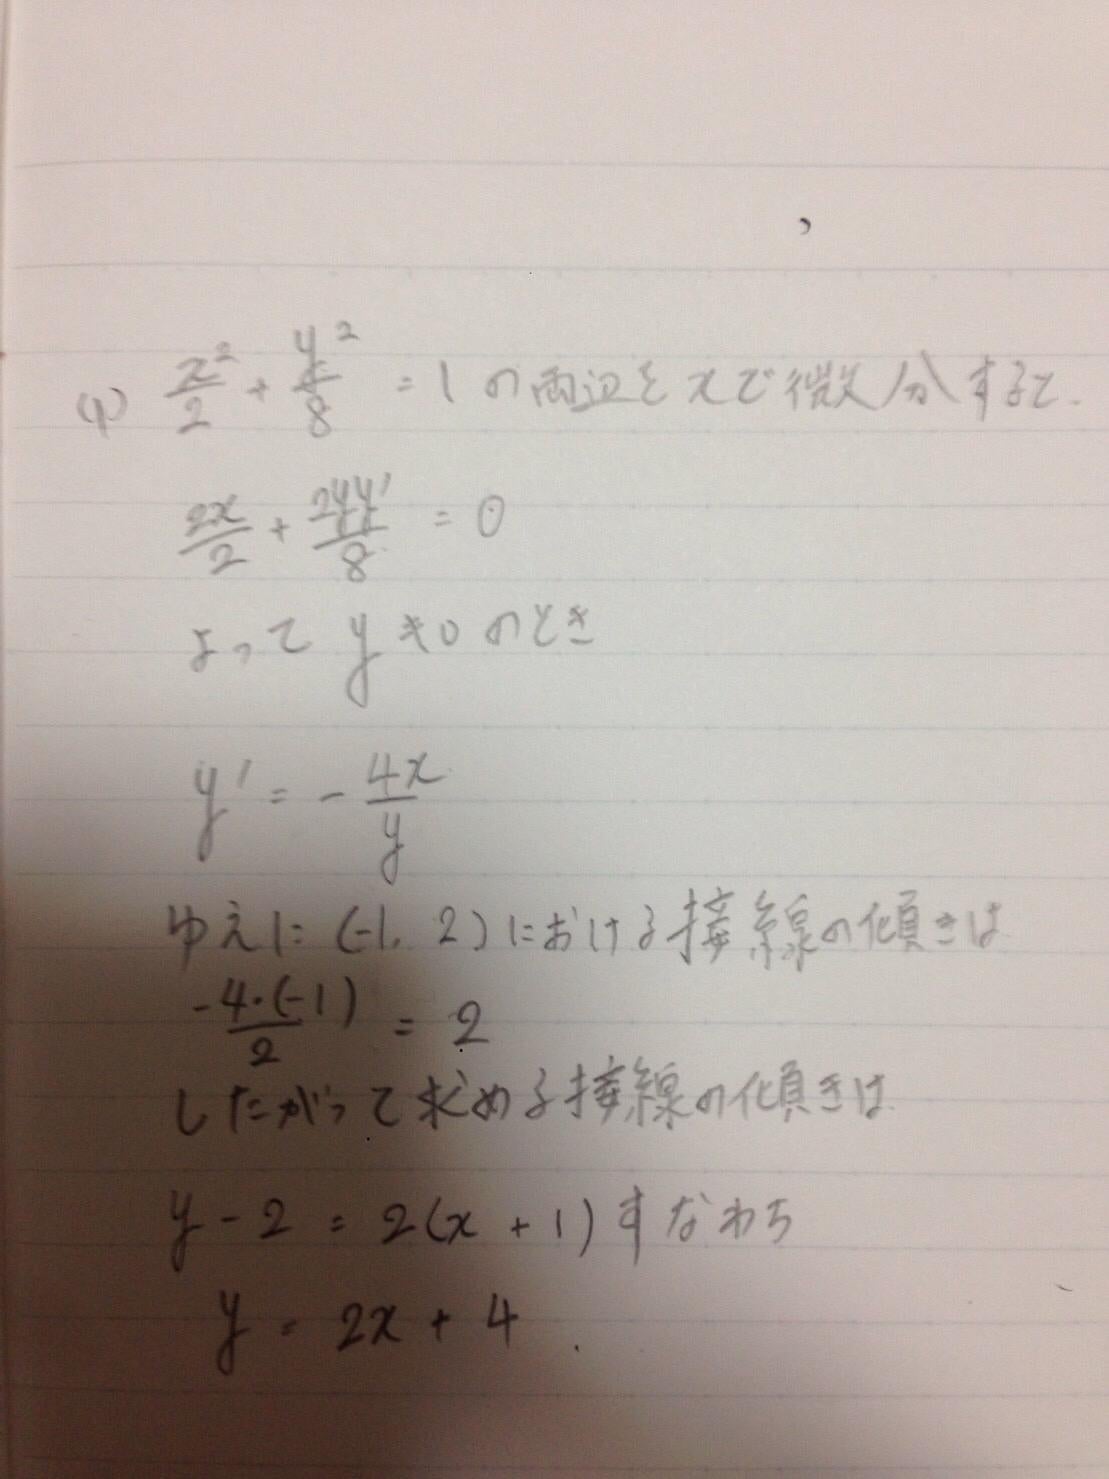 (1) x²/2 + y²/8 = 1 の両辺を xで微分すると.
2x/2 + 2yy'/8 = 0
よって y≠0 のとき
y' = - 4x/y
ゆえに (-1, 2) における接線の傾きは
-4・(-1)/2 = 2
したがって求める接線の傾きは
y - 2 = 2(x + 1) すなわち
y = 2x + 4